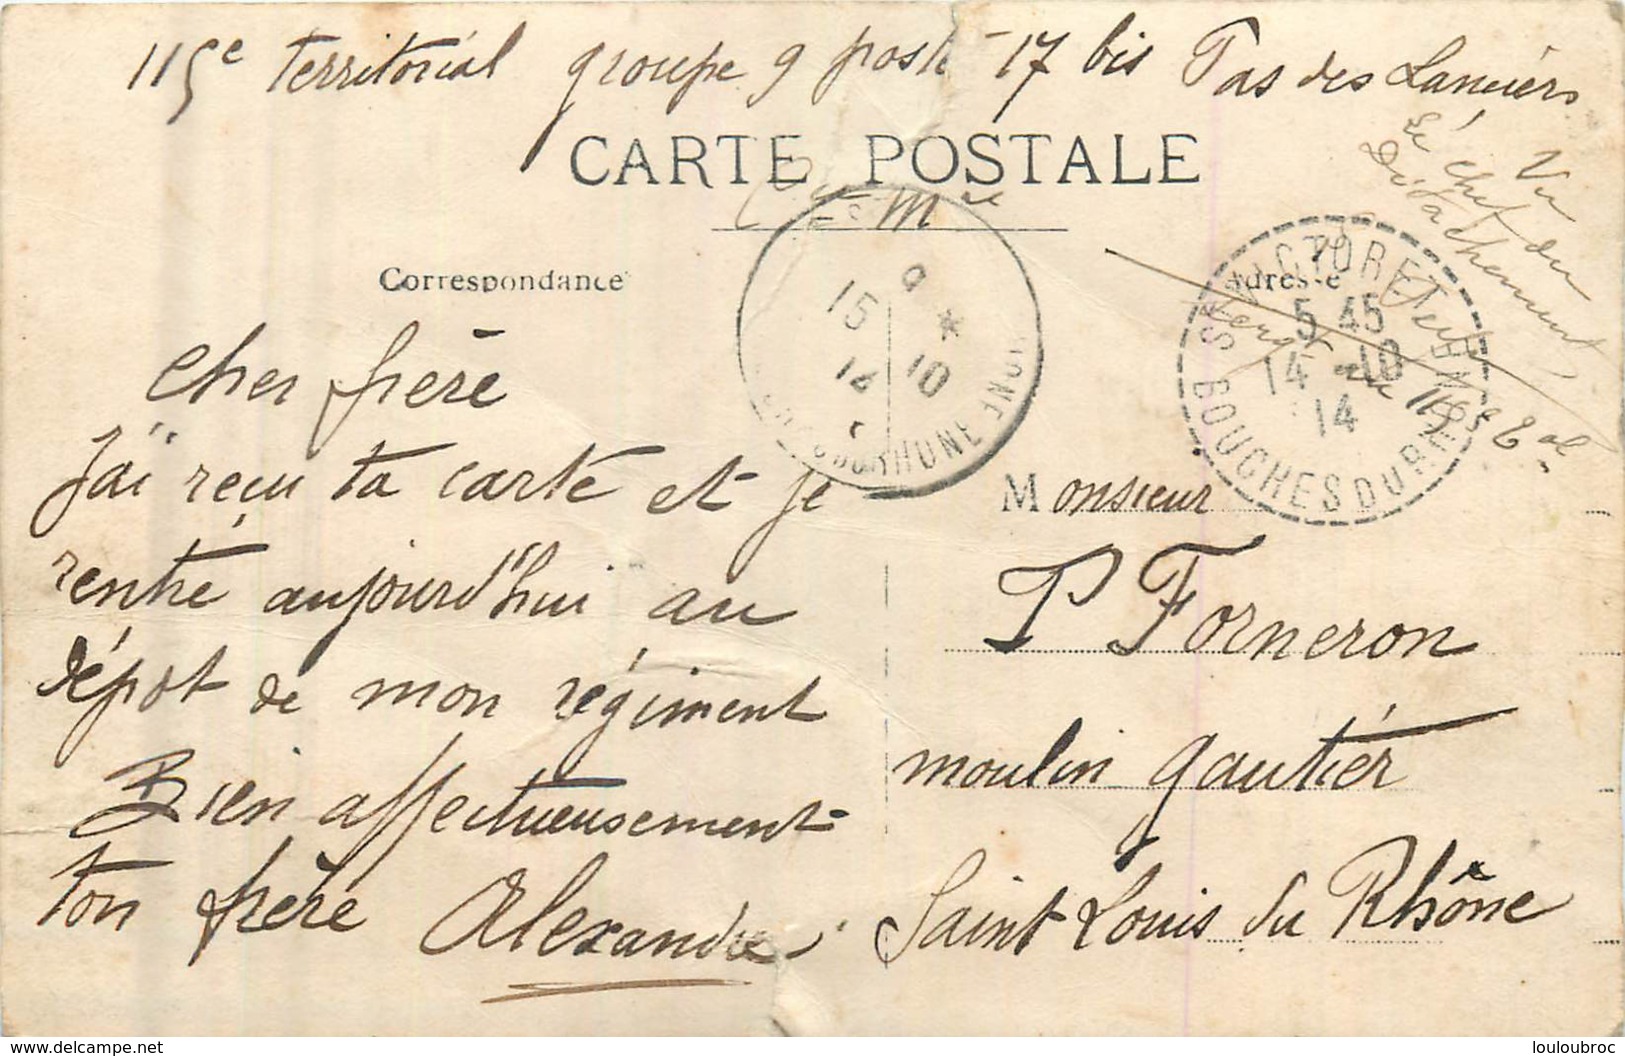 115e territorial groupe 9 poste 17 bis Pas des Lanciers
CARTE POSTALE
Cce Mre
Correspondance
Adresse
Vu
Le chef du
Détachement
Sergt
du 115e Tal
9 *
15 10
14
RHONE
VICTORET
5 45
14 -10
14
BOUCHES DU RHONE
Cher frère
J'ai reçu ta carte et je
rentre aujourd'hui au
dépot de mon régiment
Bien affectueusement
ton frère Alexandre
Monsieur
P Forneron
moulin gautier
Saint Louis du Rhône
www.delcampe.net
louloubroc